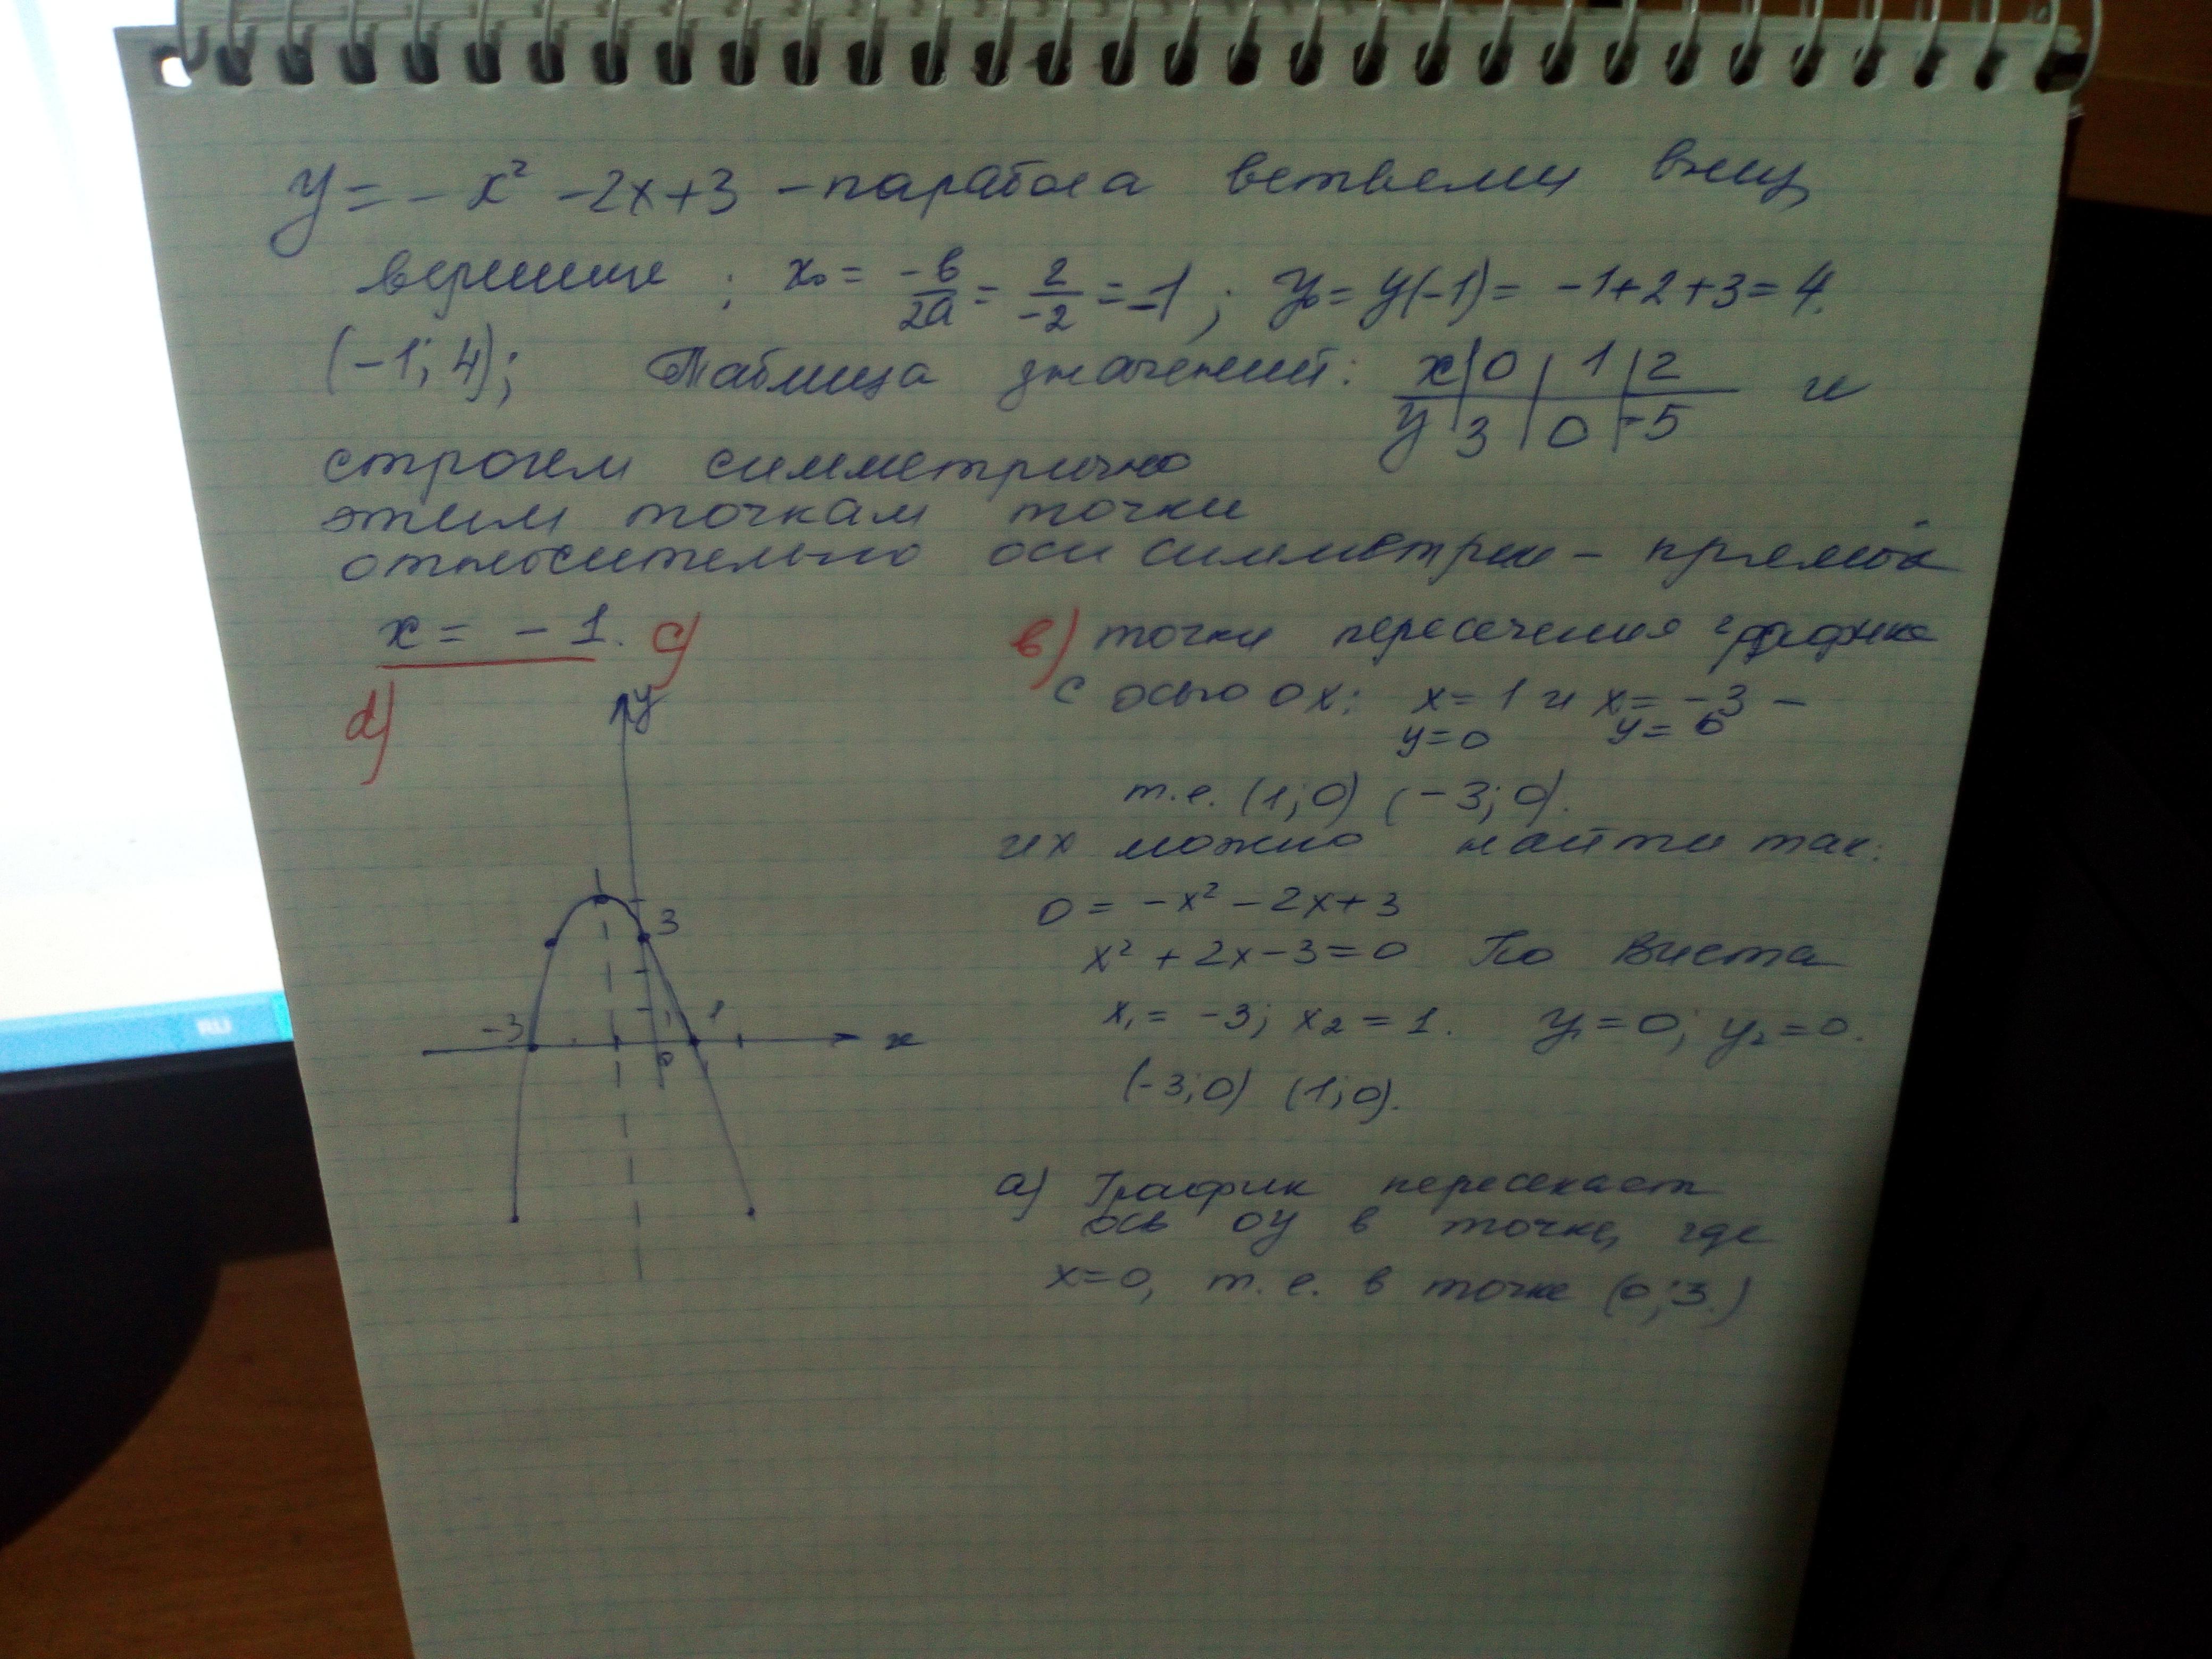 y = - x² - 2x + 3 - парабола ветвями вниз,
вершина ; x₀ = -b/2a = 2/-2 = -1 ; y₀ = y(-1) = -1+2+3 = 4.
(-1; 4); Таблица значений: x | 0 | 1 | 2 и
y | 3 | 0 | -5
строим симметрично
этим точкам точки
относительно оси симметрии - прямой
x = - 1. c)
d)
y
3
-3
1
0
x
в) точки пересечения графика
с осью ox: x = 1 и x = -3 -
y=0 y=0
т.е. (1; 0) (-3; 0).
их можно найти так:
0 = -x² - 2x + 3
x² + 2x - 3 = 0 По Виета
x₁ = -3; x₂ = 1. y₁ = 0; y₂ = 0.
(-3; 0) (1; 0).
а) График пересекает
ось oy в точке, где
x=0, т.е. в точке (0; 3.)
RU